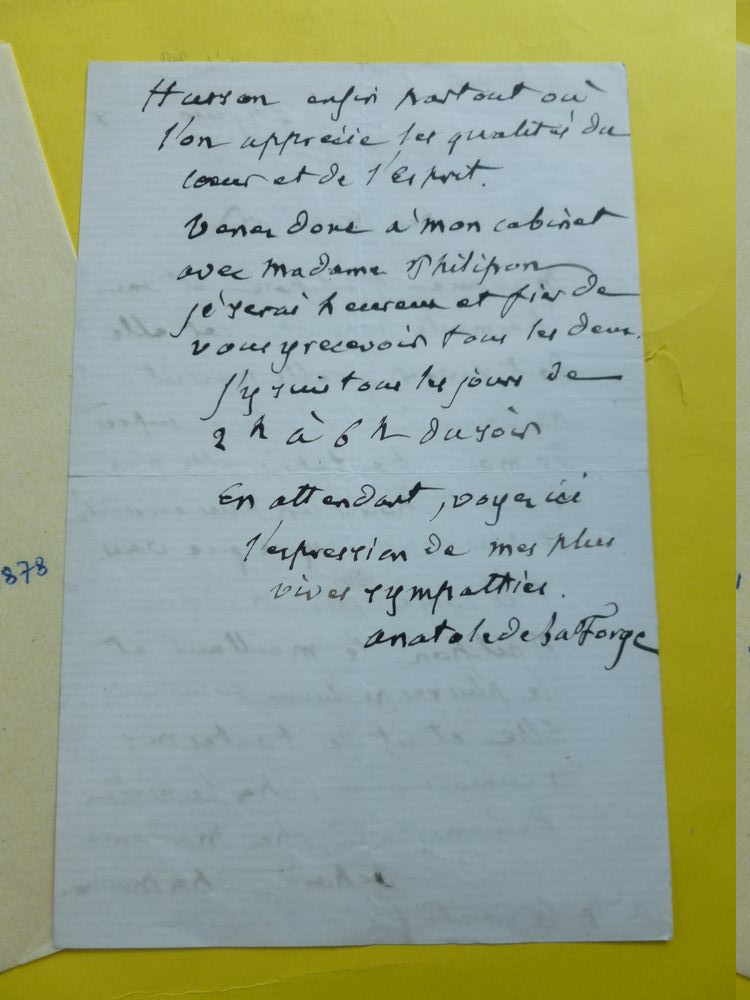 Husson enfin partout où
l'on apprécie les qualités du
coeur et de l'Esprit.
Venez donc à mon cabinet
avec Madame Philipon
je serai heureux et fier de
vous y recevoir tous les deux.
J'y suis tous les jours de
2 h à 6 h du soir
En attendant, voyez ici
l'expression de mes plus
vives sympathies.
Anatole de La Forge
878